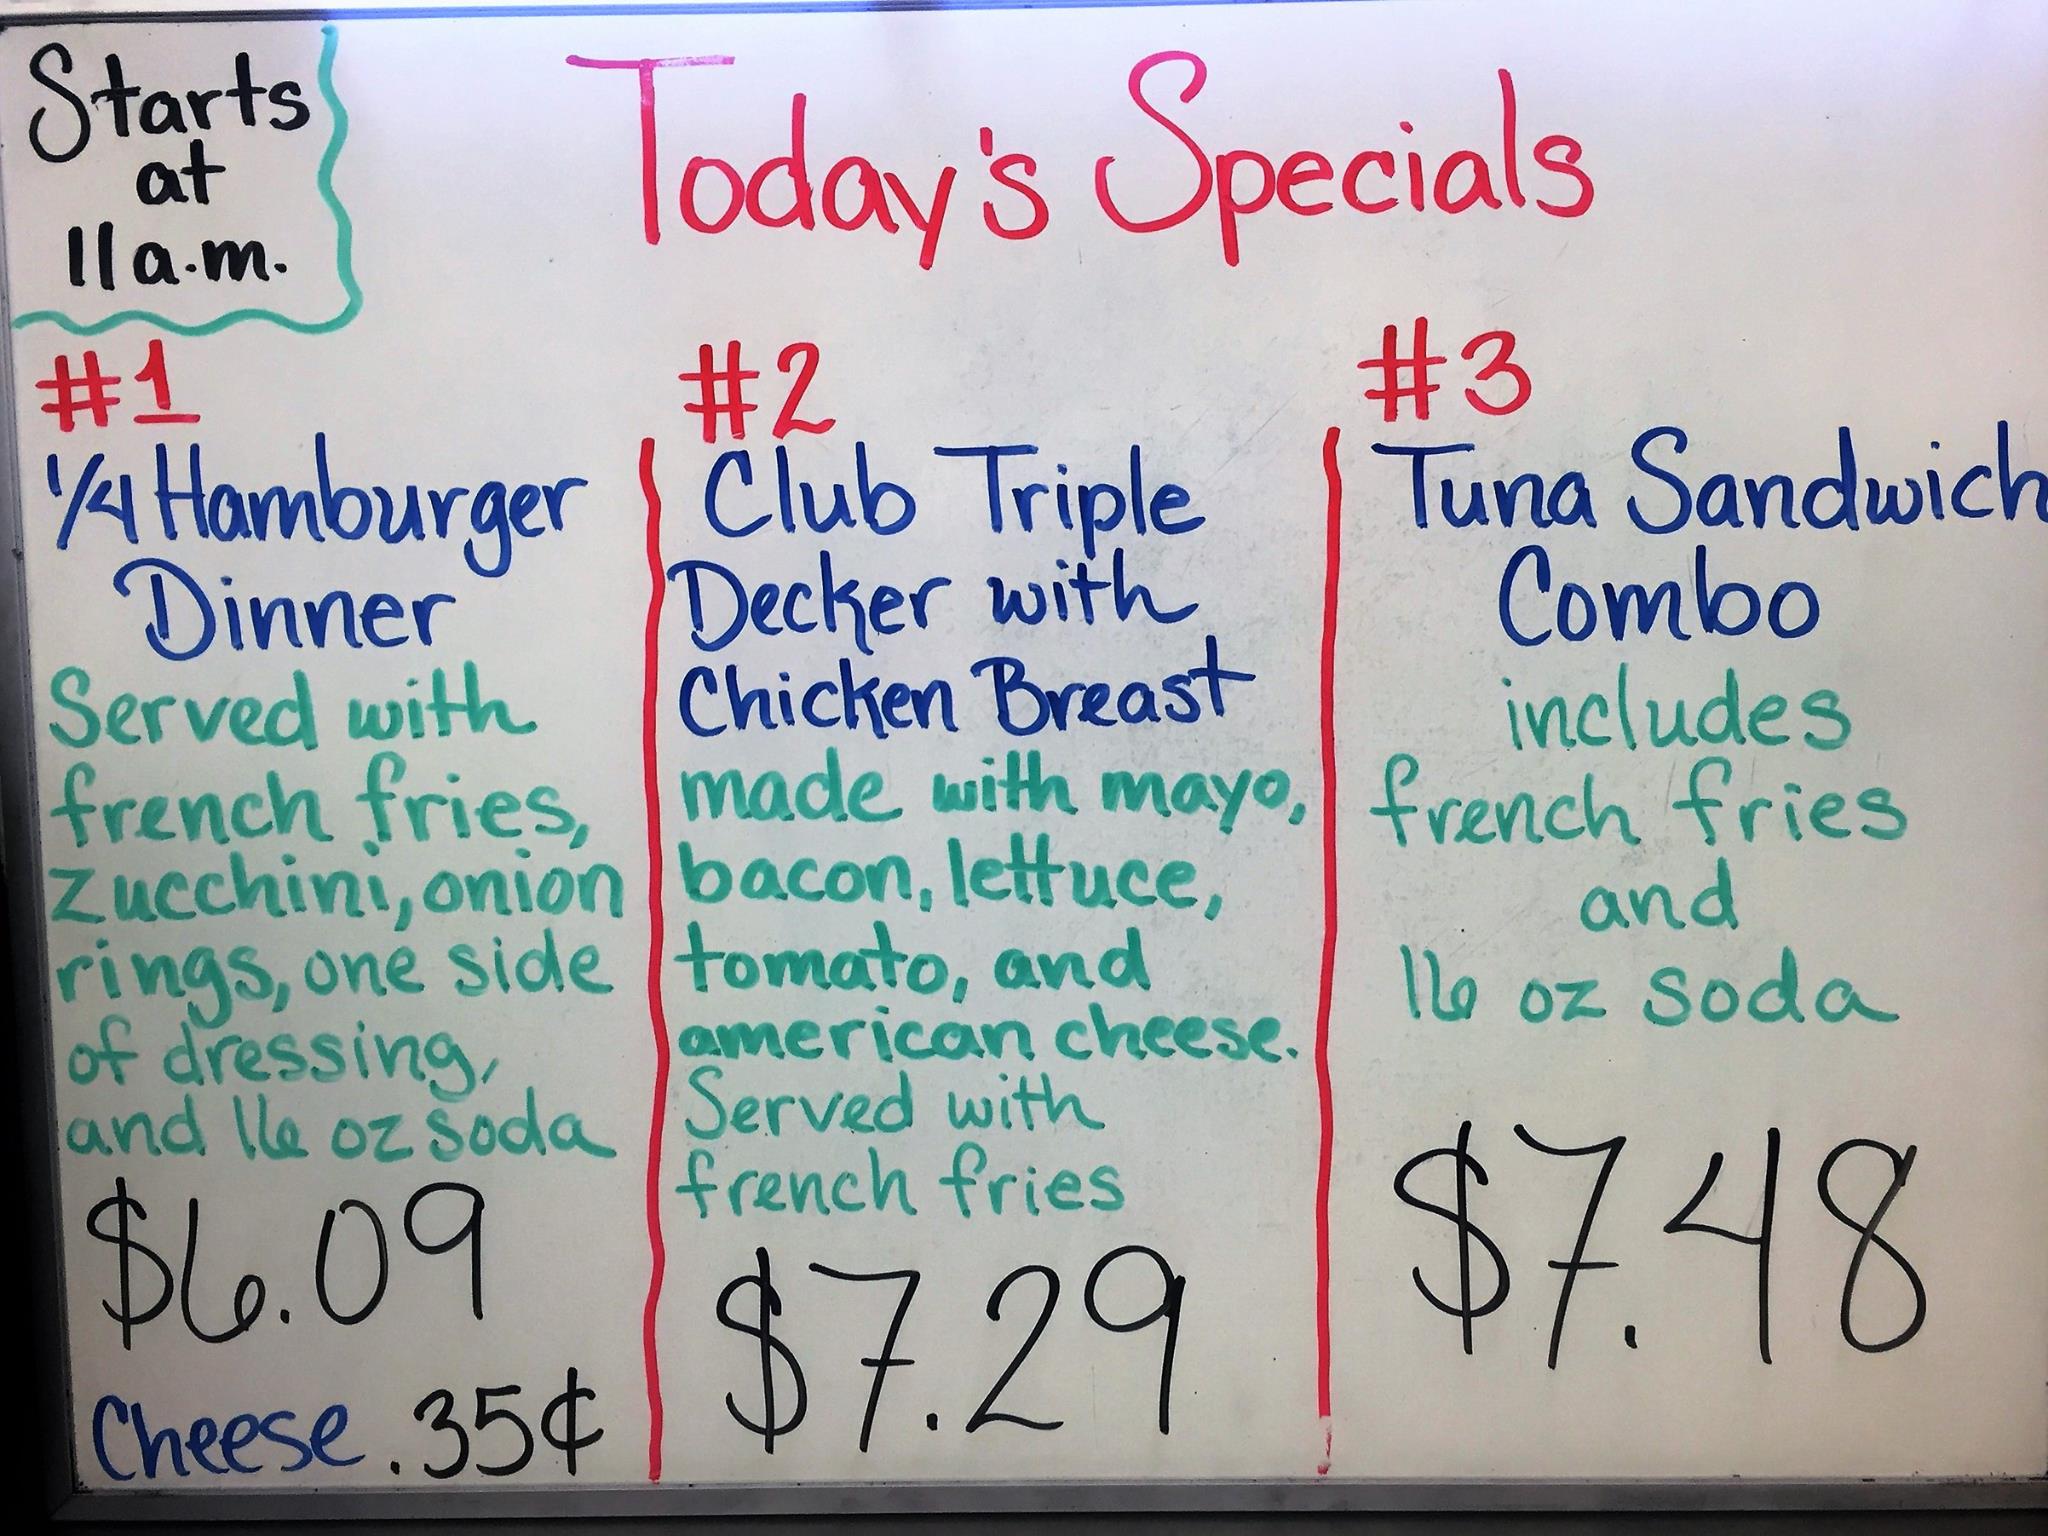 Starts
at
11 a.m.
Today's Specials
#1
1/4 Hamburger
Dinner
Served with
french fries,
zucchini, onion
rings, one side
of dressing,
and 16 oz soda
$6.09
Cheese .35¢
#2
Club Triple
Decker with
Chicken Breast
made with mayo,
bacon, lettuce,
tomato, and
american cheese.
Served with
french fries
$7.29
#3
Tuna Sandwich
Combo
includes
french fries
and
16 oz soda
$7.48